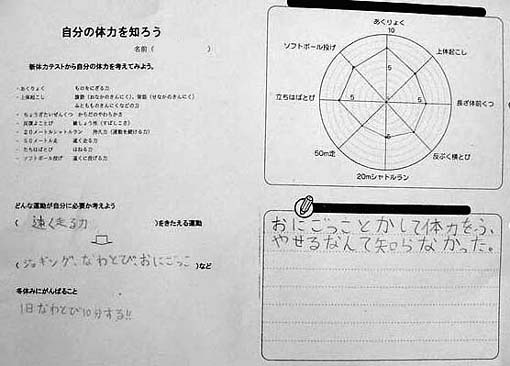 自分の体力を知ろう
名前（　　　　　）
新体力テストから自分の体力を考えてみよう。
・あくりょく　ものをにぎる力
・上体起こし　腹筋（おなかのきんにく）、背筋（せなかのきんにく）
ふともものきんにくなどの力
・ちょうざたいぜんくつ　からだのやわらかさ
・反復よことび　敏しょう性（すばしこさ）
・20メートルシャトルラン　持久力（運動を続ける力）
・50メートル走　速く走る力
・たちはばとび　はねる力
・ソフトボール投げ　遠くに投げる力
どんな運動が自分に必要か考えよう
（速く走る力）をきたえる運動
（ジョギング、なわとび、おにごっこ）など
冬休みにがんばること
1日なわとび10分する!!
あくりょく
10
ソフトボール投げ
上体起こし
5
立ちはばとび
5
5
長ざ体前くつ
5
50m走
反ぷく横とび
20mシャトルラン
おにごっことかして体力をつ、
やせるなんて知らなかった。